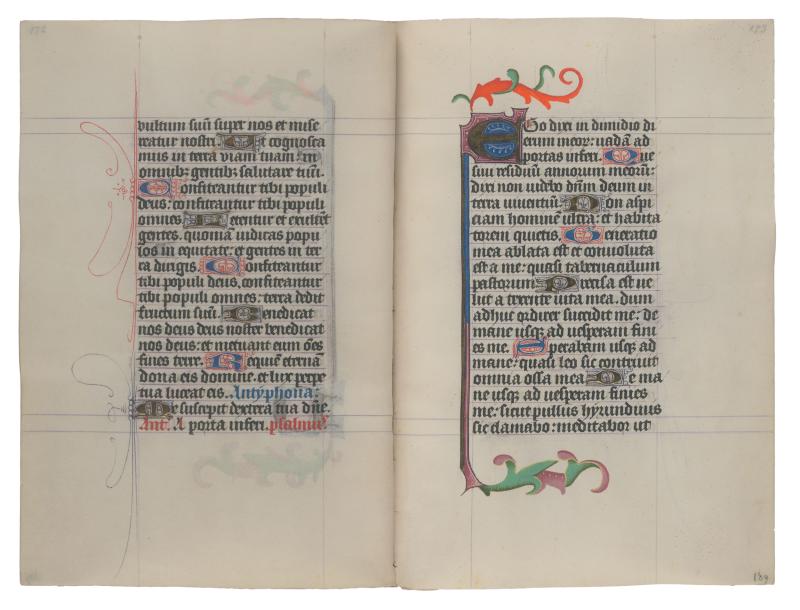 vultum suū super nos et mise
reatur nostri. Et cognosca
mus in terra viam tuam: in
omnibꝫ gentibꝫ salutare tuū.
Confiteantur tibi populi
deus: confiteantur tibi populi
omnes. Letentur et exultēt
gentes. quoniā iudicas popu
los in equitate: et gentes in ter
ra dirigis. Confiteantur
tibi populi deus, confiteantur
tibi populi omnes: terra dedit
fructum suū. Benedicat
nos deus deus noster benedicat
nos deus: et metuant eum ōes
fines terre. Requiē eternā
dona eis domine. et lux perpe
tua luceat eis. Antyphona:
Me suscepit dextera tua dn̄e.
Ant. A porta inferi. psalmus.
Ego dixi in dimidio di
erum meor: uadā ad
portas inferi. Que
siui residuū annorum meorū:
dixi non videbo dn̄m deum in
terra uiuentiū. Non aspi
ciam hominē ultra: et habita
torem quietis. Generatio
mea ablata est et conuoluta
est a me: quasi tabernaculum
pastorum. Precisa est ue
lut a texente uita mea. dum
adhuc ordirer succidit me: de
mane usqꝫ ad uesperam fini
es me. Sperabam usqꝫ ad
mane: quasi leo sic contriuit
omnia ossa mea. De ma
ne usqꝫ ad uesperam finies
me: sicut pullus hyrundinis
sic clamabo: meditabor ut
189